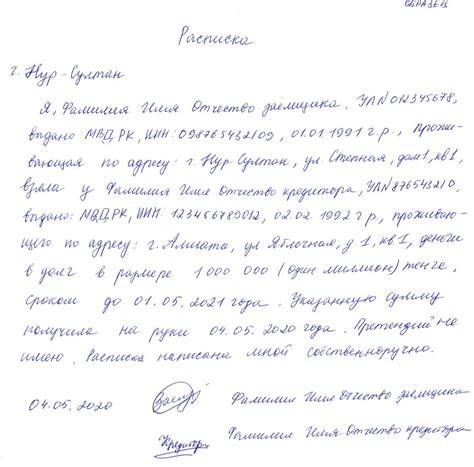 ОБРАЗЕЦ
Расписка
г. Нур-Султан
Я, Фамилия Имя Отчество заёмщика, УЛN012345678,
выдано: МВД РК, ИИН: 098765432109, 01.01.1991 г.р., прожи-
вающая по адресу: г. Нур-Султан, ул. Степная, дом 1, кв 1,
взяла у Фамилия Имя Отчество кредитора, УЛN876543210,
выдано: МВД РК, ИИН: 123456789012, 02.02.1992 г.р., проживаю-
щего по адресу: г. Алмата, ул Яблочная, д 1, кв 1, деньги
в долг в размере 1 000 000 (один миллион) тенге,
сроком до 01.05.2021 года. Указанную сумму
получила на руки 04.05.2020 года. Претензий не
имею. Расписка написана мной собственноручно.
04.05.2020 Фамилия Имя Отчество заёмщика
Кредитор Фамилия Имя Отчество кредитора